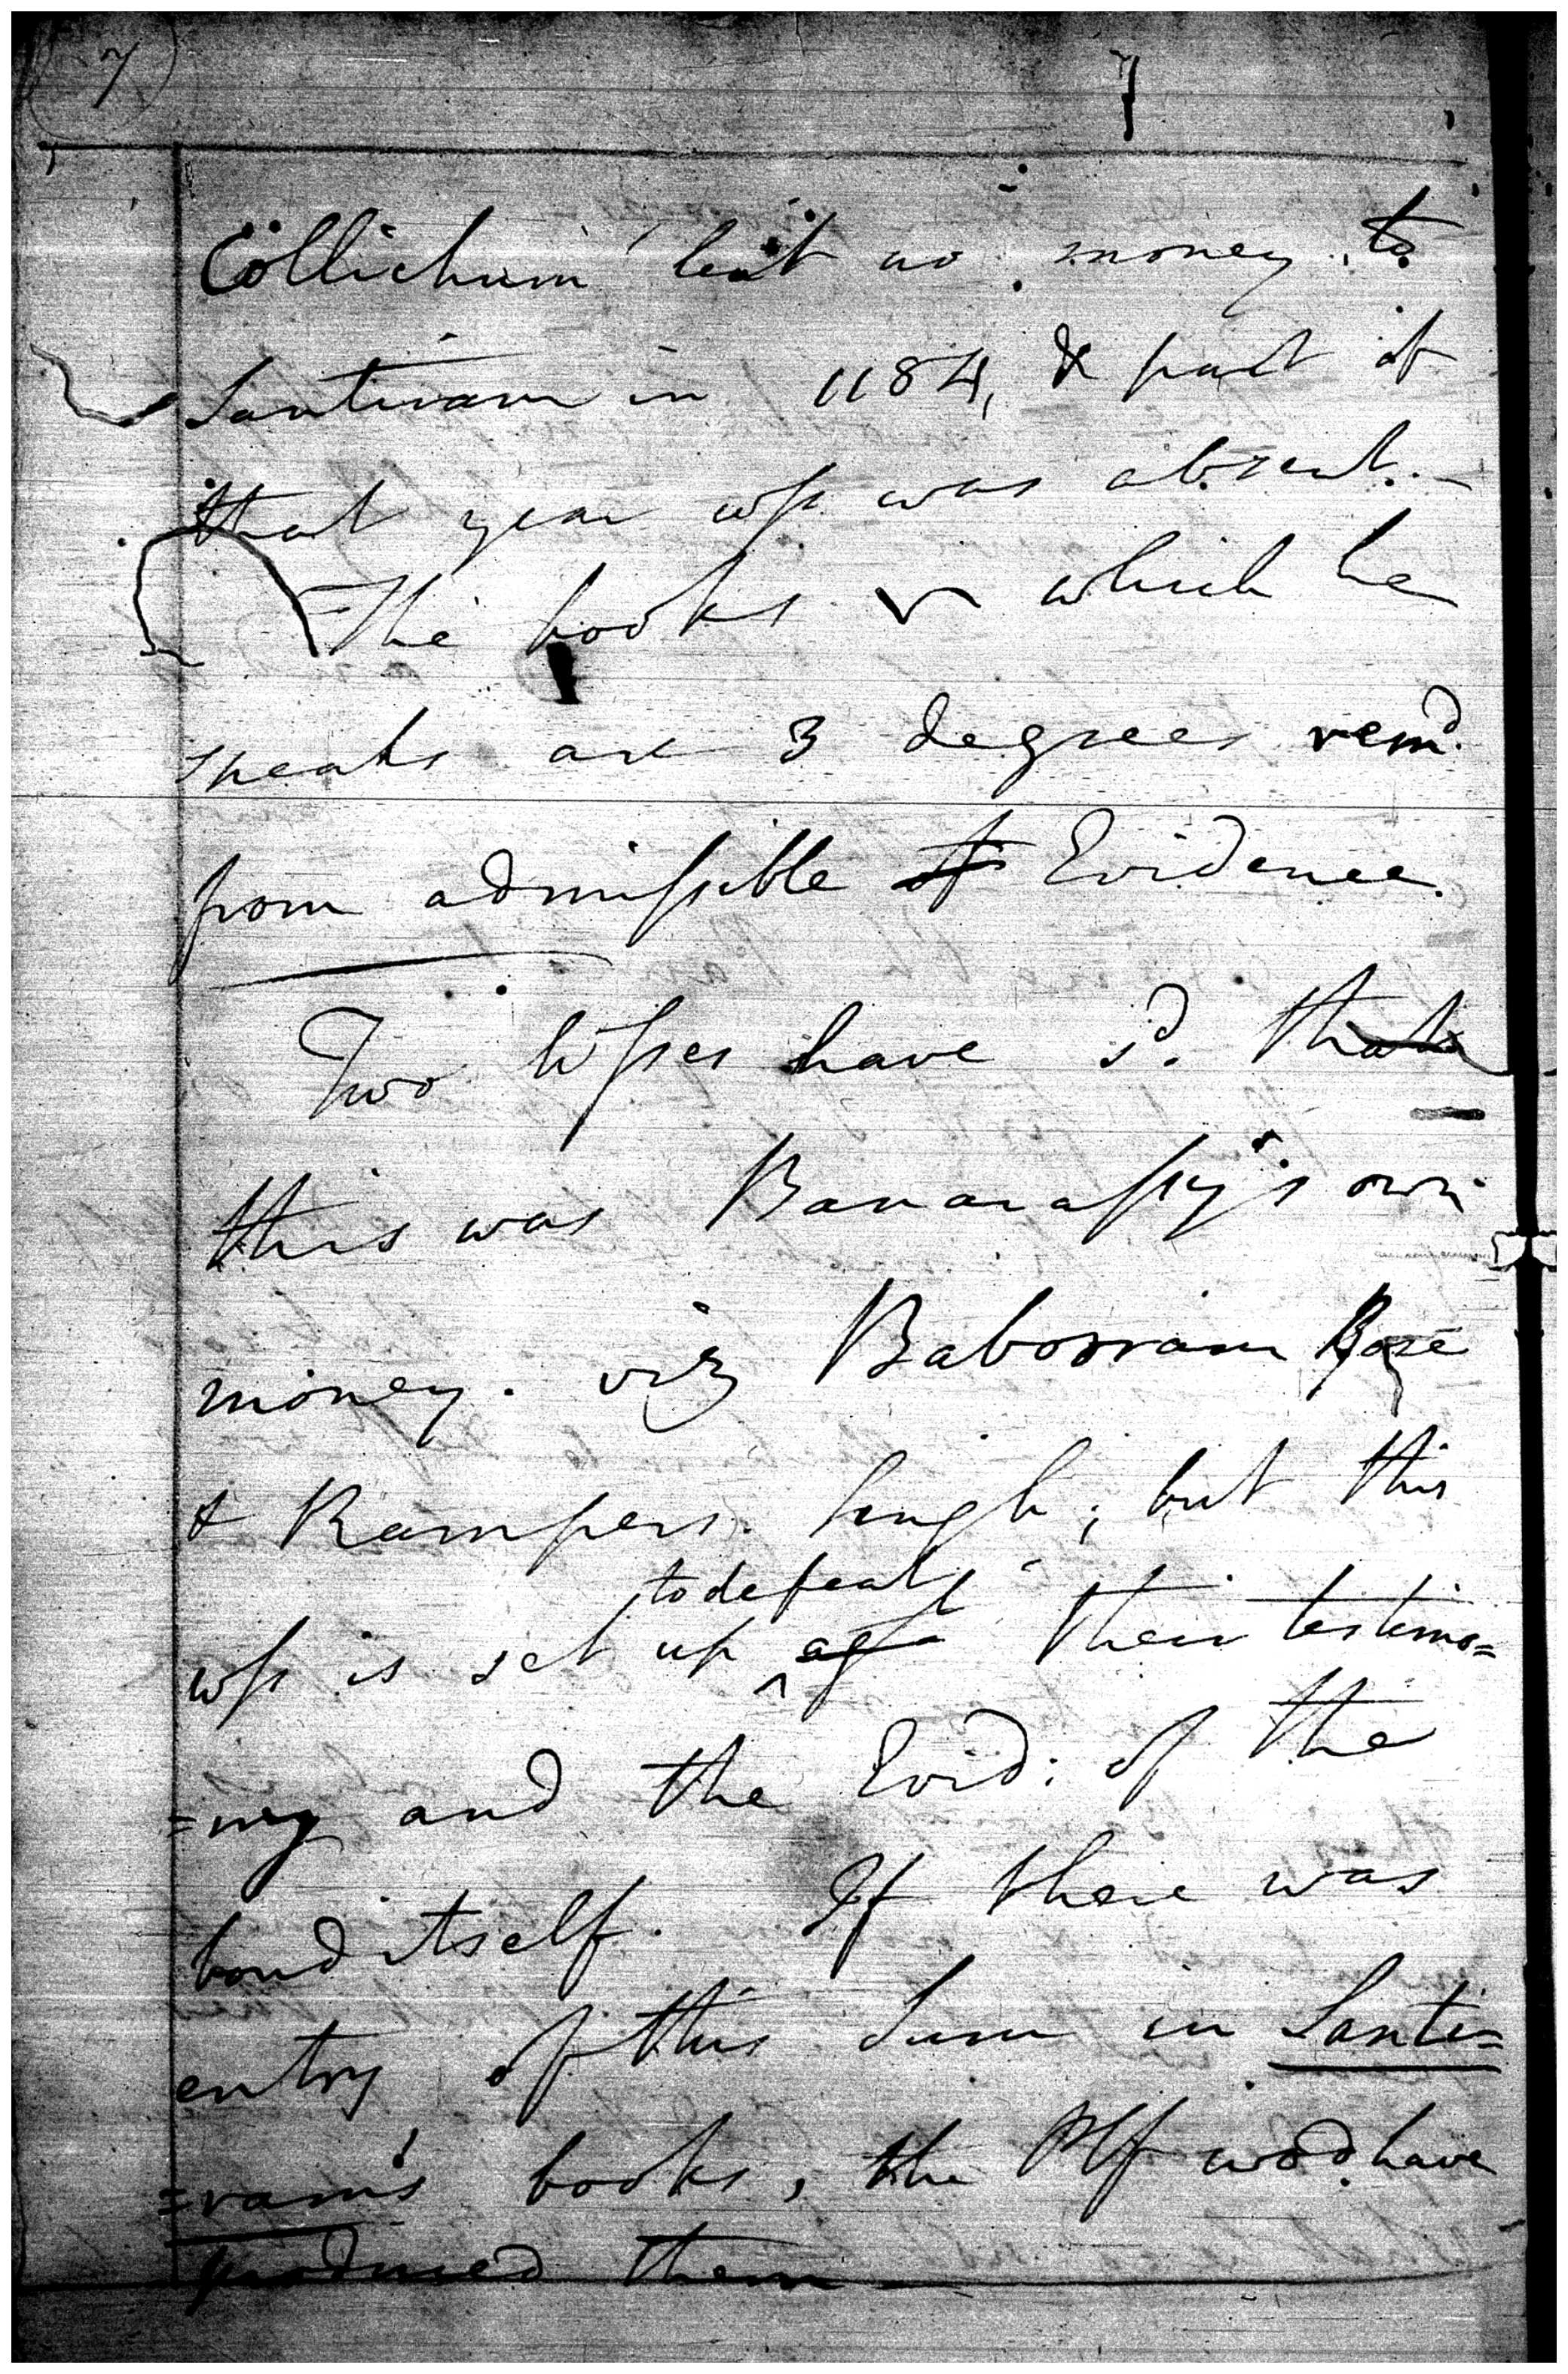 7
7
Collichurn lent no money to
Santiram in 1184, & part of
that year wss was absent.
The books of which he
speaks are 3 degrees rem.d
from admissible of Evidence.
Two wsses have s.d that
this was Banarassy's own
money. viz Babooram Bose
& Rampers. Singh; but this
to defeat
wss is set up ^ agst their testimo=
=ny and the Evid: of the
bond itself. If there was
entry of this Sum in Santi=
=ram's books, the Plf wod have
produced them